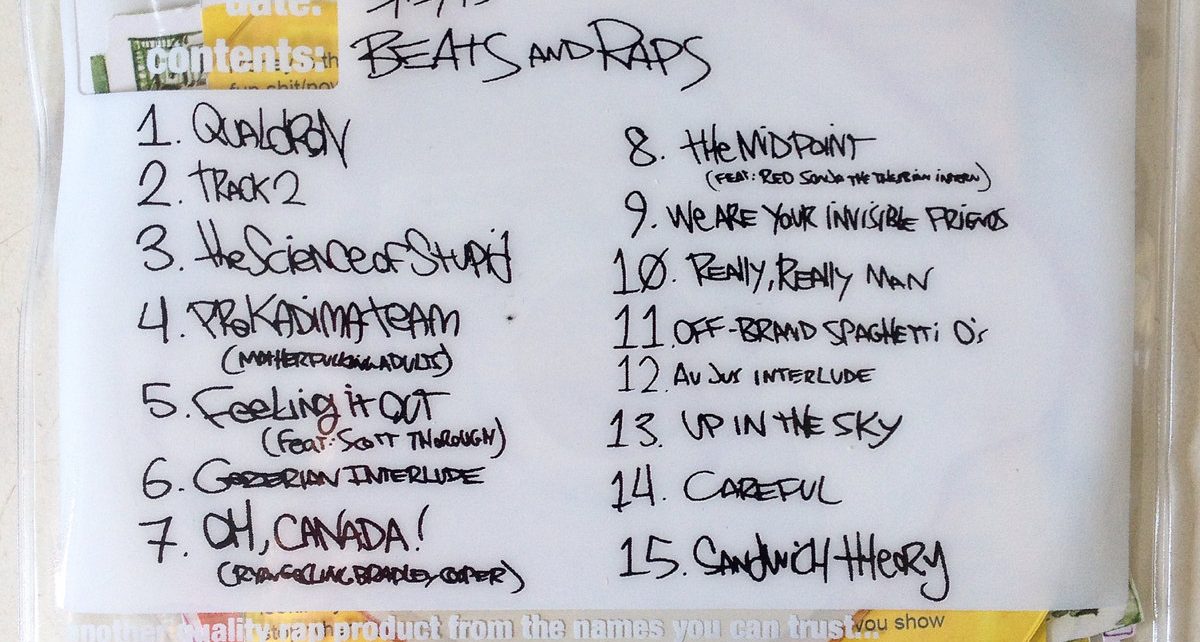 date:
contents: BEATS AND RAPS
1. QUALDRON
2. TRACK 2
3. the Science of Stupid
4. PROKADIMA TEAM
(MOTHERFUCKING ADULTS)
5. Feeling it OUT
(Feat: SCOTT THOROUGH)
6. GOZERIAN INTERLUDE
7. OH, CANADA!
(RYAN GOSLING, BRADLEY COOPER)
8. the MiDPOiNT
(FEAT: RED SONJA THE INTERN)
9. We ARE YOUR INVISIBLE FRIENDS
10. REALLY, REALLY MAN
11. OFF-BRAND SPAGHETTi O's
12. AU JUS INTERLUDE
13. UP IN THE SKY
14. CAREFUL
15. SANDWICH tHEORY
another quality rap product from the names you can trust...
you show